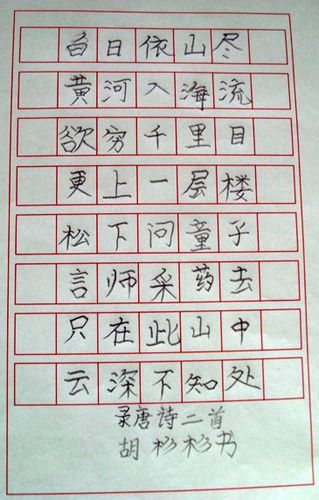 白日依山尽
黄河入海流
欲穷千里目
更上一层楼
松下问童子
言师采药去
只在此山中
云深不知处
录唐诗二首
胡杉杉书